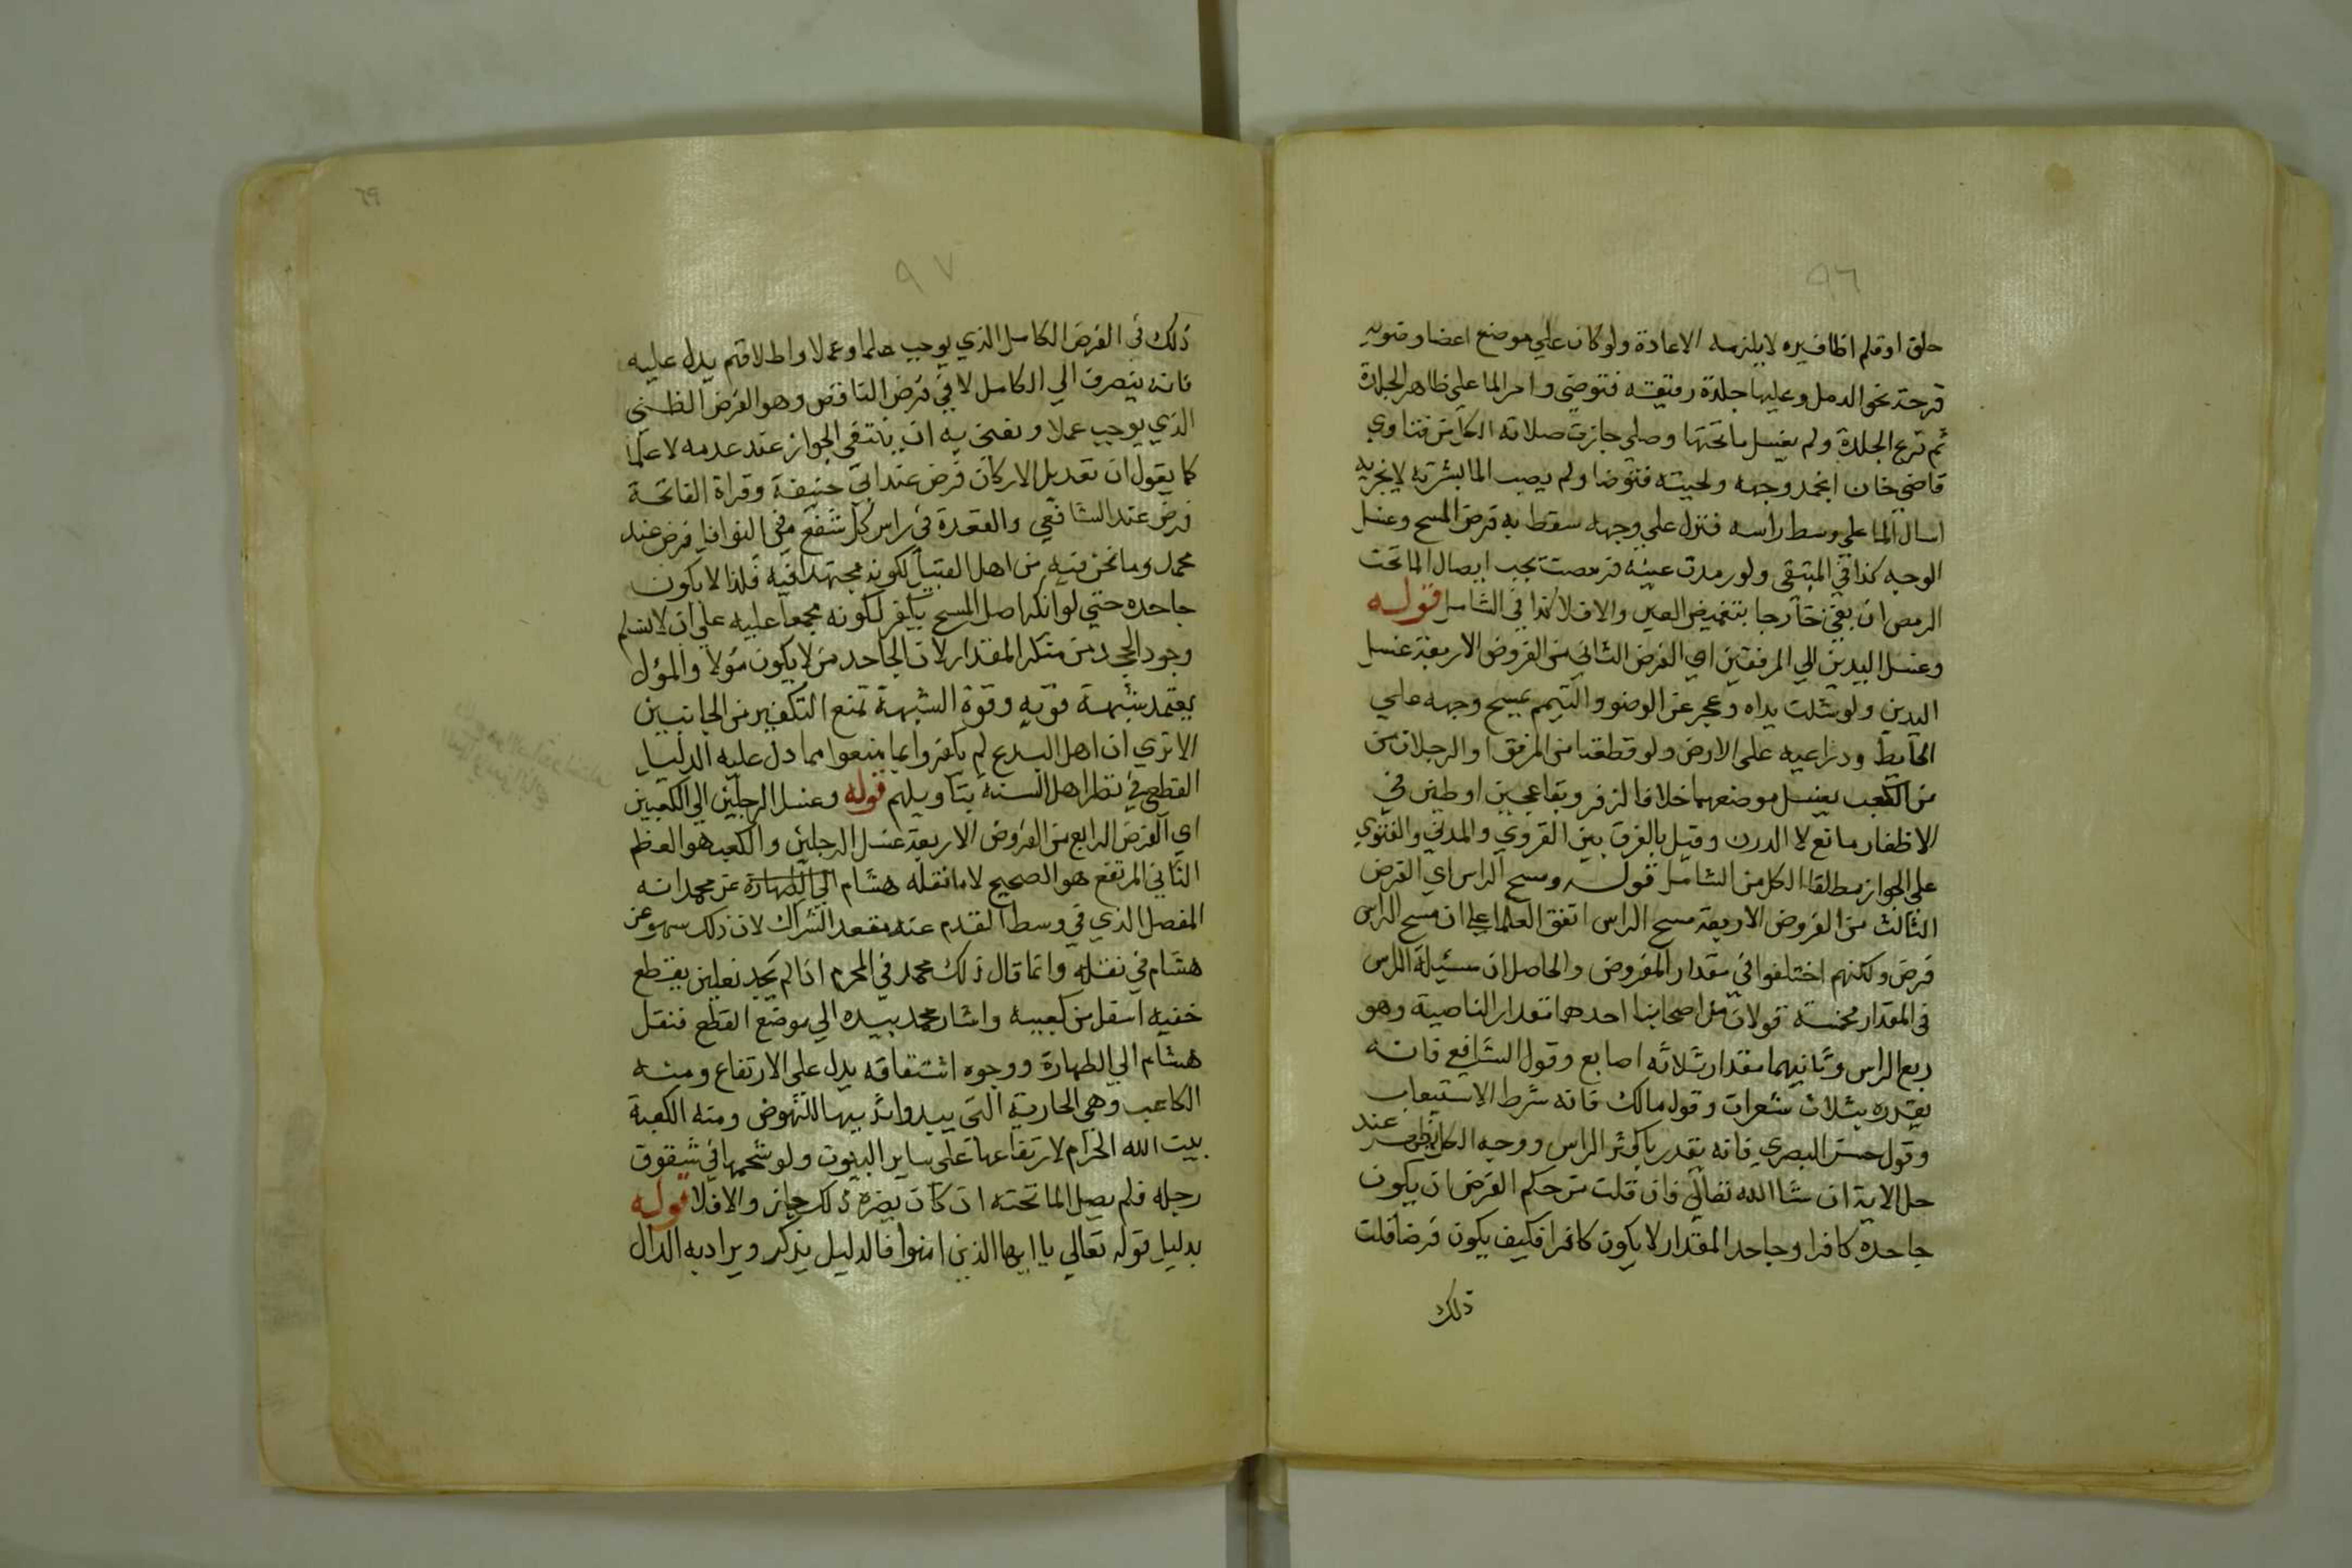 ٩٦
حلق او قلم اظافيره لا يلزمه الاعادة ولو كان علي موضع اعضا وضويه
قرحة نحو الدمل وعليها جلدة رقيقة فتوضي وامر الما علي ظاهر الجلدة
ثم نزع الجلدة ولم يغسل ما تحتها وصلي جازت صلاته الكل من فتاوي
قاضي خان وجهه ولحيته فتوضا ولم يصب الما بشرته لا يجزيه
اسال الما علي وسط رأسه فنزل علي وجهه سقط به فرض المسح وغسل
الوجه كذا في المنتقى ولو رمدت عينه فرمصت يجب ايصال الما تحت
الرمص ان بقي خارجا بتغميض العين والا فلا كذا في الشامل قوله
وغسل اليدين الي المرفقين اي الفرض الثاني من الفروض الاربعة غسل
اليدين ولو شلت يداه وعجز عن الوضو والتيمم يمسح وجهه علي
الحايط وذراعيه على الارض ولو قطعتا من المرفق او الرجلان من
من الكعب يغسل موضعهما خلافا لزفر وبقا عجين او طين في
الاظفار مانع لا الدرن وقيل بالفرق بين القروي والمدني والفتوي
على الجواز مطلقا الكل من الشامل قوله ومسح الراس اي الفرض
الثالث من الفروض الاربعة مسح الراس اتفق العلما علي ان مسح الراس
فرض ولكنهم اختلفوا في مقدار المفروض والحاصل ان مسئيلة الراس
في المقدار مخمسة قولان من اصحابنا احدهما مقدار الناصية وهو
ربع الراس وثانيهما مقدار ثلاثه اصابع وقول الشافع فانه
يقدره بثلاث شعرات وقول مالك فانه شرط الاستيعاب
وقول حسن البصري فانه يقدر باكثر الراس ووجه الكل يظهر عند
حل الاية ان شا الله تعالي فان قلت من حكم الفرض ان يكون
جاحده كافرا وجاحد المقدار لا يكون كافرا فكيف يكون فرضا قلت
ذلك
٦٩
٩٧
ذلك في الفرض الكامل الذي يوجب علما وعملا واطلاقهم يدل عليه
فانه ينصرف الي الكامل لا في فرض الناقص وهو الفرض الظني
الذي يوجب عملا ونعني به ان ينتفي الجواز عند عدمه لا علما
كما يقول ان تعديل الاركان فرض عند ابي حنيفة وقراة الفاتحة
فرض عند الشافعي والقعدة في راس كل شفع في النوافل فرض عند
محمد وما نحن فيه من اهل القبيل لكونه مجتهدا فيه فلذا لا يكون
جاحده حتي لو انكر اصل المسح يكفر لكونه مجمعا عليه علي ان لا نسلم
وجود الجحد من منكر المقدار لان الجاحد من لا يكون مؤلا والمؤل
يعتمد شبهة قويه وقوة الشبهة تمنع التكفير من الجانبين
الا تري ان اهل البدع لم يكفروا بما منعوا مما دل عليه الدليل
القطعي في نظر اهل السنة بتاويلهم قوله وغسل الرجلين الي الكعبين
اي الفرض الرابع من الفروض الاربعة غسل الرجلين والكعب هو العظم
الناني المرتفع هو الصحيح لا ما نقله هشام الي الطهارة عن محمد انه
المفصل الذي في وسط القدم عند مقعد الشراك لان ذلك سهو عن
هشام في نقله وانما قال ذلك محمد في المحرم اذا لم يجد نعلين يقطع
خفيه اسفل من كعبيه واشار محمد بيده الي موضع القطع فنقل
هشام الي الطهارة ووجوه اشتقاقه يدل على الارتفاع ومنه
الكاعب وهي الجارية التي يبدوا ثدييها للنهوض ومنه الكعبة
بيت الله الحرام لارتفاعها على ساير البيوت ولو شحمها في شقوق
رجله فلم يصل الما تحته ان كان يضره ذلك جاز والا فلا قوله
بدليل قوله تعالي يا ايها الذين امنوا فالدليل يذكر ويراد به الدال